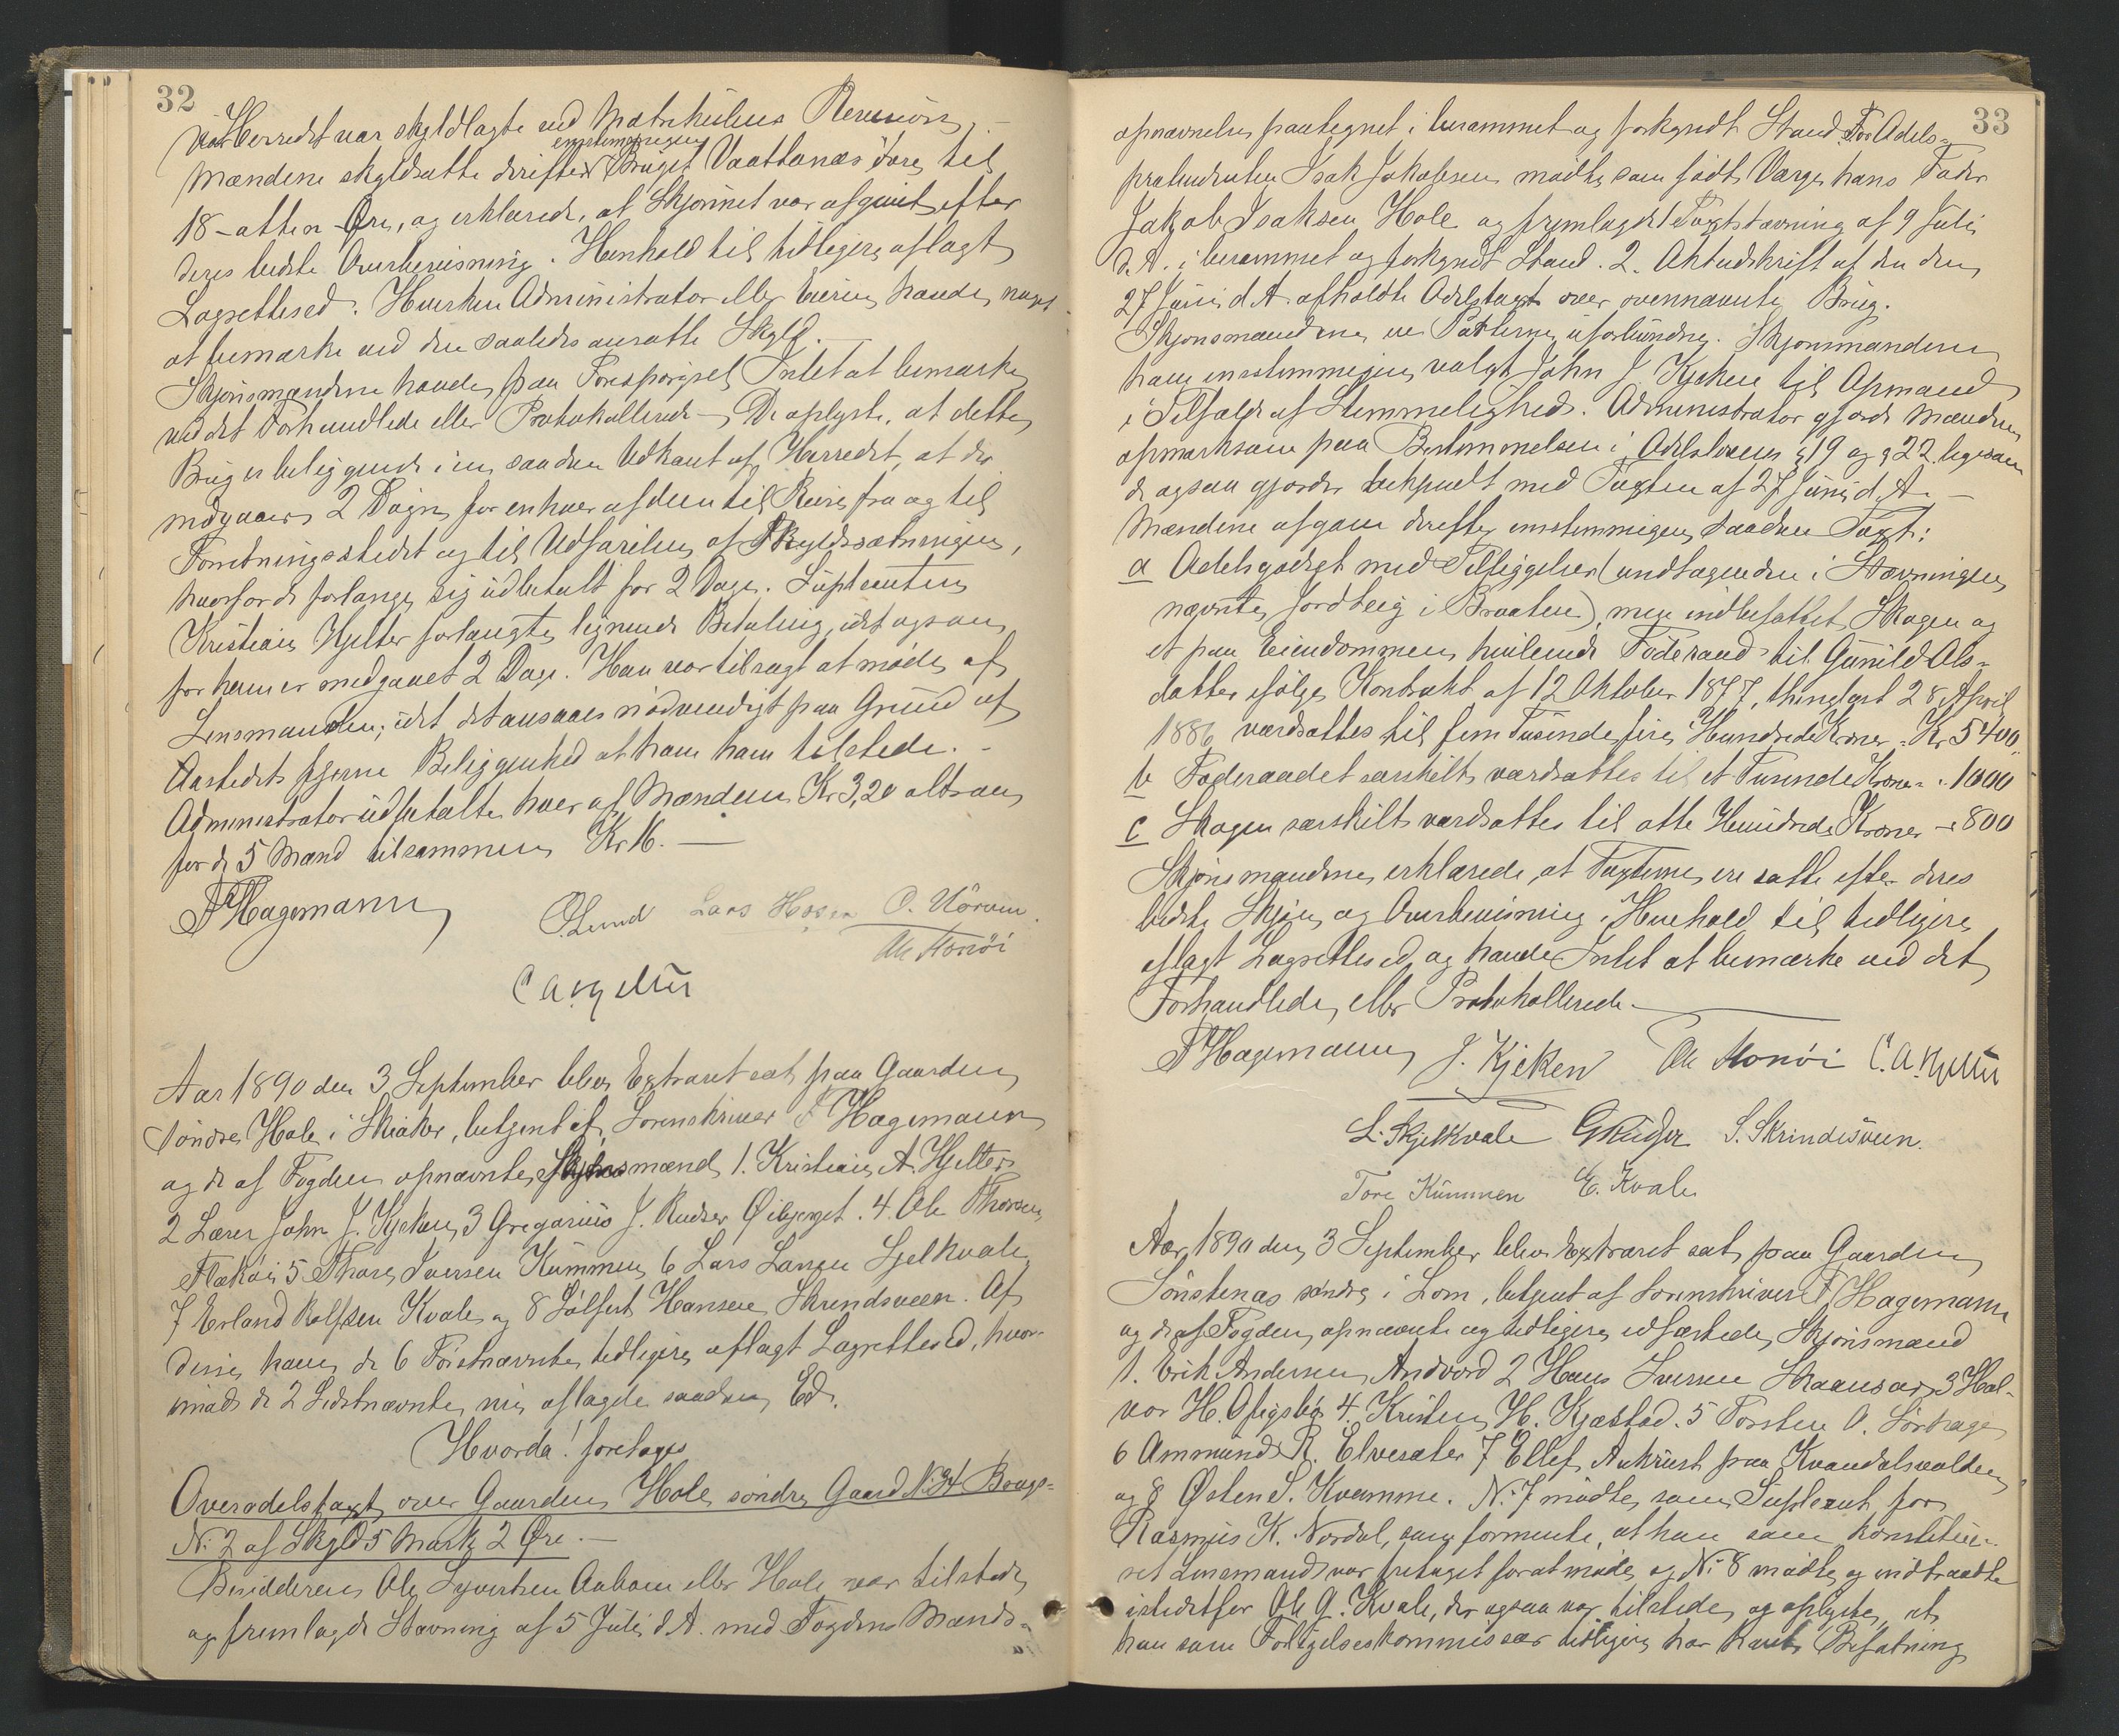 32
i Herredet var skyldlagte ved Matrikulens Revision. -
Mændene skyldsatte derefter enstemmigen Bruget Vaattanæs øvre til
18 - atten - Øre, og erklærede, at Skjønnet var afgivet efter
deres bedste Overbevisning i Henhold til tidligere aflagt
Lagrettesed. Hverken Administrator eller Eieren havde noget
at bemærke ved den saaledes ansatte Skyld. -
Skjønsmændene havde paa Forespørgsel Intet at bemærke
ved det Forhandlede eller Protokollerede - De oplyste, at dette
Brug er beliggende i en saadan Udkant af Herredet, at der
medgaar 2 Døgn for enhver af dem til Reise fra og til
Forretningsstedet og til Udførelsen af Skyldsætningen,
hvorfor de forlange sig udbetalt for 2 Dage. Suplanten
Kristian Hjelter forlangte lignende Betaling, idet ogsaa
for ham er medgaaet 2 Dage. Han var tilsagt at møde af
Lensmanden, idet det ansaaes nødvendigt paa Grund af
Aastedets fjerne Beliggenhed at have ham tilstede. -
Administrator udbetalte hver af Mændene Kr 3,20 altsaa
for de 5 Mænd tilsammen Kr 16. -
F Hagemann
O Lund Lars Hosen O. Uörven.
Ole Monöi
C A Hjelter
Aar 1890 den 3 September blev Extraret sat paa Gaarden
Søndre Hole i Skiaker, betjent af Sorenskriver F Hagemann
og de af Fogden opnævnte Skjønsmænd 1. Kristian A. Hjelter
2 Lærer John J. Kjeken 3 Gregorius J. Rudser Øibjerget. 4. Ole Thoresen
Flækøi 5 Thore Iversen Kummen 6 Lars Larsen Skjelkvale
7 Erland Rolfsen Kvale og 8 Sølfest Hansen Skrindsveen. Af
disse have de 6 Førstnævnte tidligere aflagt Lagrettesed, hvori-
mod de 2 Sidstnævnte nu aflagde saadan Ed.
Hvorda! foretoges
Overodelstaxt over Gaarden Hole søndre Gaard No 34 Brugs-
No 2 af Skyld 5 Mark 2 Øre. -
Besidderen Ole Syvertsen Aaboen eller Hole var tilstede
og fremlagde Stævning af 5 Juli d A. med Fogdens Mænds-
33
opnævnelse paategnet i berammet og forkyndt Stand. For Odels-
prætendenten Isak Jakobsen mødte som født Verge hans Fader
Jakob Isaksen Hole og fremlagde 1 Taxtstævning af 9 Juli
d. A. i berammet og forkyndt Stand. 2. Aktudskrift af den den
27 Juni d A. afholdte Odelstaxt over ovennævnte Brug.
Skjønsmændene ere Parterne uforbundne. Skjønsmændene
have enstemmigen valgt John J. Kjeken til Opmand
i Tilfælde af Stemmelighed. Administrator gjorde Mændene
opmærksom paa Bestemmelsen i Odelslovens § 19 og § 22 ligesom
de ogsaa gjordes bekjendt med Taxten af 27 Juni d. A. -
Mændene afgave derefter enstemmigen saadan Taxt:
a Odelsgodset med Tilliggelser (undtagen den i Stævningen
nævnte Jordteig i Braaten), men indbefattet Skogen og
et paa Eiendommen hvilende Føderaad til Gunild Ols-
datter ifølge Kontrakt af 12 Oktober 1877, thinglæst 28 April
1886 værdsattes til fem Tusinde fire Hundrede Kroner - Kr 5400,
b Føderaadet særskilt værdsattes til et Tusinde Kroner - 1000
c Skogen særskilt værdsattes til otte Hundrede Kroner - 800
Skjønsmændene erklærede, at Taxterne ere satte efter deres
bedste Skjøn og Overbevisning i Henhold til tidligere
aflagt Lagrettesed og havde Intet at bemærke ved det
Forhandlede eller Protokollerede -
F Hagemann J. Kjeken Ole Monöi C. A. Hjelter
L. Skjelkvale G Rudser S. Skrindsveen.
Tore Kummen E. Kvale
Aar 1890 den 3 September blev Extraret sat paa Gaarden
Sønstenæs søndre i Lom, betjent af Sorenskriver F Hagemann
og de af Fogden opnævnte og tidligere edfæstede Skjønsmænd
1. Erik Andersen Andvord 2 Hans Iversen Skaansar 3 Hal-
vor H. Ofigsbø 4. Kristen H. Kjæstad. 5 Torsten O. Sørhage
6 Ammund R. Elvesæter 7 Ellef Aukrust paa Kvandalsvolden
og 8 Østen S. Kvamme. No 7 mødte som Supleant for
Rasmus K. Nordal, som formente, at han som konstitue-
ret Lensmand var fritaget for at møde og No 8 mødte og indtraadte
istedetfor Ole G. Kvale, der ogsaa var tilstede og oplyste, at
han som Forligelseskommissær tidligere har havt Befatning